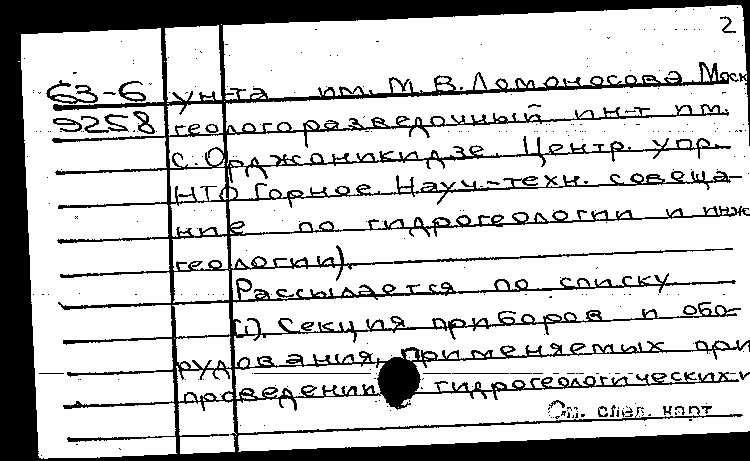 2
63-6 ун-та им. М. В. Ломоносова Моск
9258 геологоразведочный ин-т им.
С. Орджоникидзе. Центр. упр.
НТО Горное. Науч.-техн. совеща-
ние по гидрогеологии и инж
геологии).
Рассылается по списку
(1). Секция приборов и обо-
рудования, применяемых при
проведении гидрогеологических и
См. след. карт